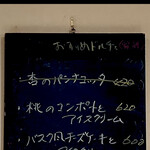 おすすめドルチェ
・杏のパンナコッタ 620
・桃のコンポートと 620
アイスクリーム
・バスク風チーズケーキと